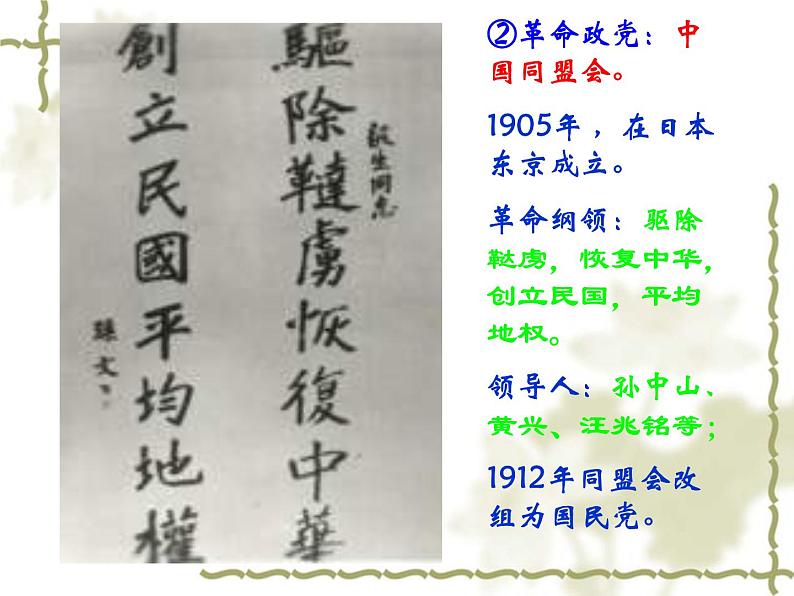 驅除韃虜恢復中華
創立民國平均地權
孫文
②革命政党：中
国同盟会。
1905年，在日本
东京成立。
革命纲领：驱除
鞑虏，恢复中华，
创立民国，平均
地权。
领导人：孙中山、
黄兴、汪兆铭等；
1912年同盟会改
组为国民党。